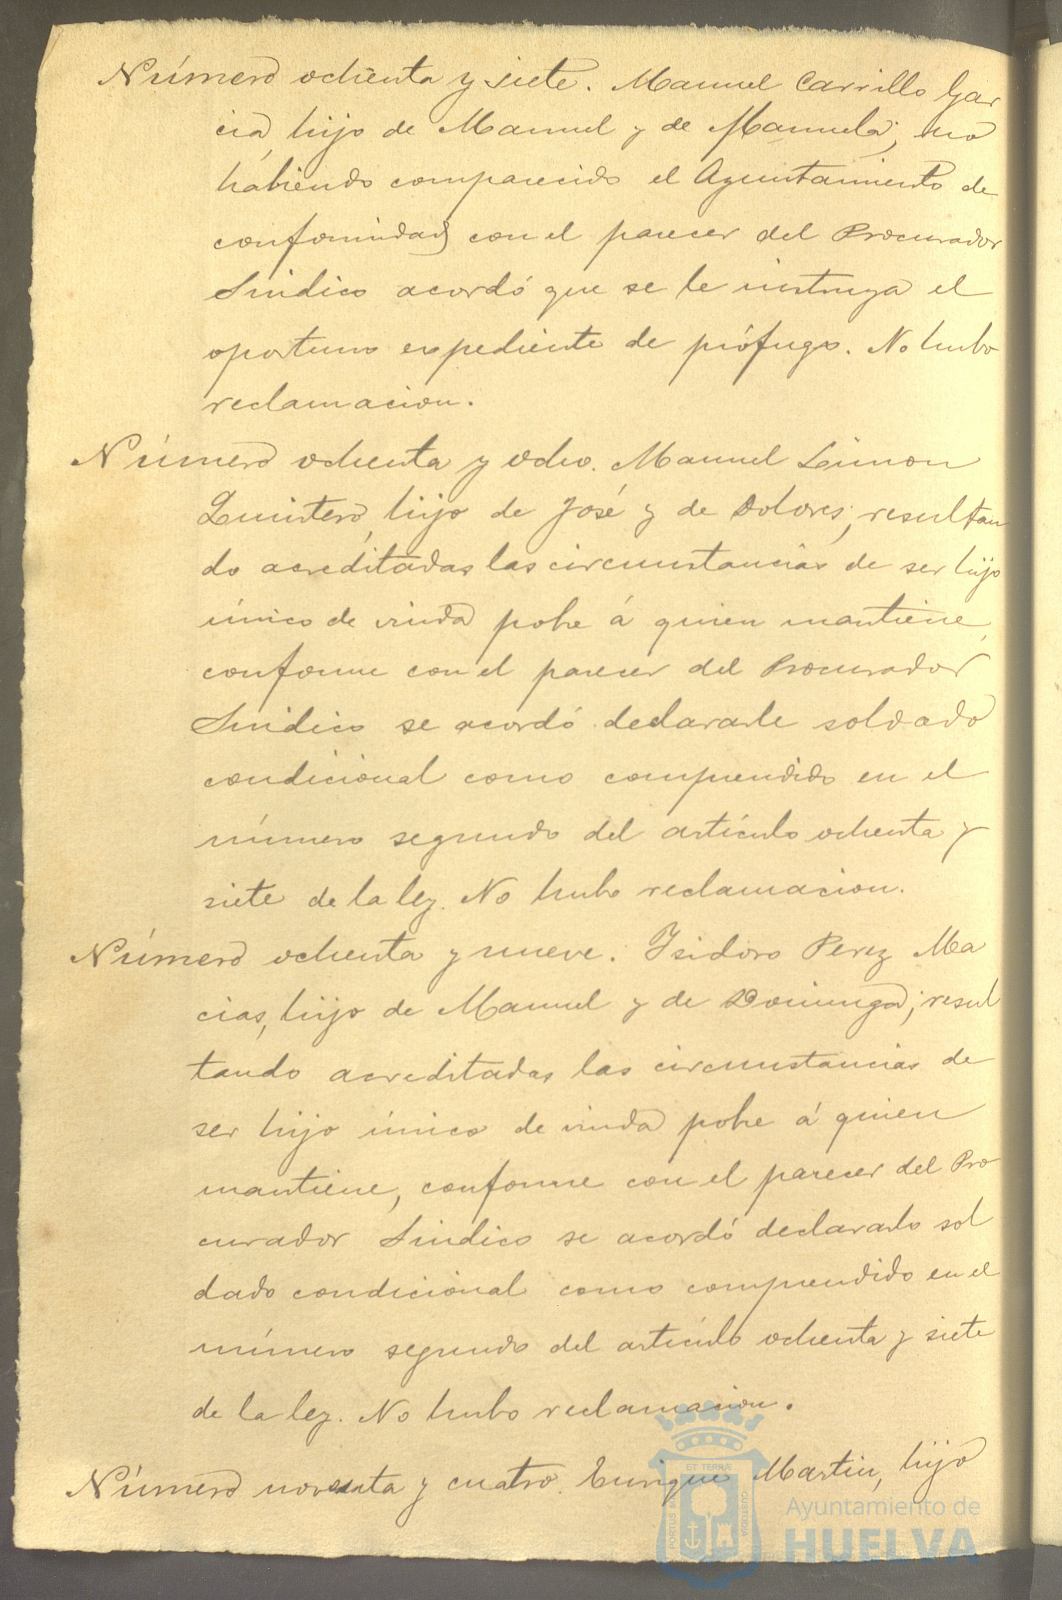 Número ochenta y siete. Manuel Carrillo Gar
cia, hijo de Manuel y de Manuela; no
habiendo comparecido el Ayuntamiento de
conformidad con el parecer del Procurador
Sindico acordó que se le instruya el
oportuno expediente de prófugo. No hubo
reclamacion.
Número ochenta y ocho. Manuel Limon
Quintero, hijo de José y de Dolores; resultan
do acreditadas las circunstancias de ser hijo
único de viuda pobre á quien mantiene,
conforme con el parecer del Procurador
Sindico se acordó declararle soldado
condicional como comprendido en el
número segundo del artículo ochenta y
siete de la ley. No hubo reclamacion.
Número ochenta y nueve. Isidoro Perez Ma
cias, hijo de Manuel y de Dominga; resul
tando acreditadas las circunstancias de
ser hijo único de viuda pobre á quien
mantiene, conforme con el parecer del Pro
curador Sindico se acordó declararlo sol
dado condicional como comprendido en el
número segundo del artículo ochenta y siete
de la ley. No hubo reclamacion.
Número noventa y cuatro. Enrique Martin, hijo
PORTUS MARIS ET TERRÆ CUSTODIA
Ayuntamiento de
HUELVA